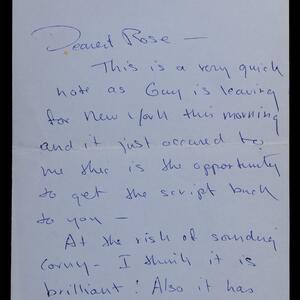 Dearest Rose —
This is a very quick
note as Guy is leaving
for New York this morning
and it just occured to
me this is the opportunity
to get the script back
to you —
At the risk of sounding
corny — I think it is
brilliant! Also it has